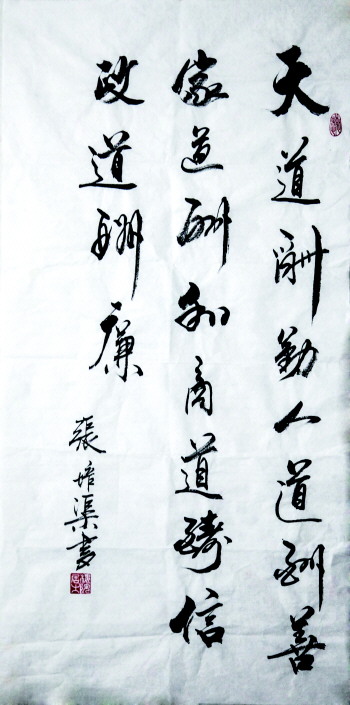 天道酬勤人道酬善
家道酬和商道醻信
政道酬廉
張培渠書